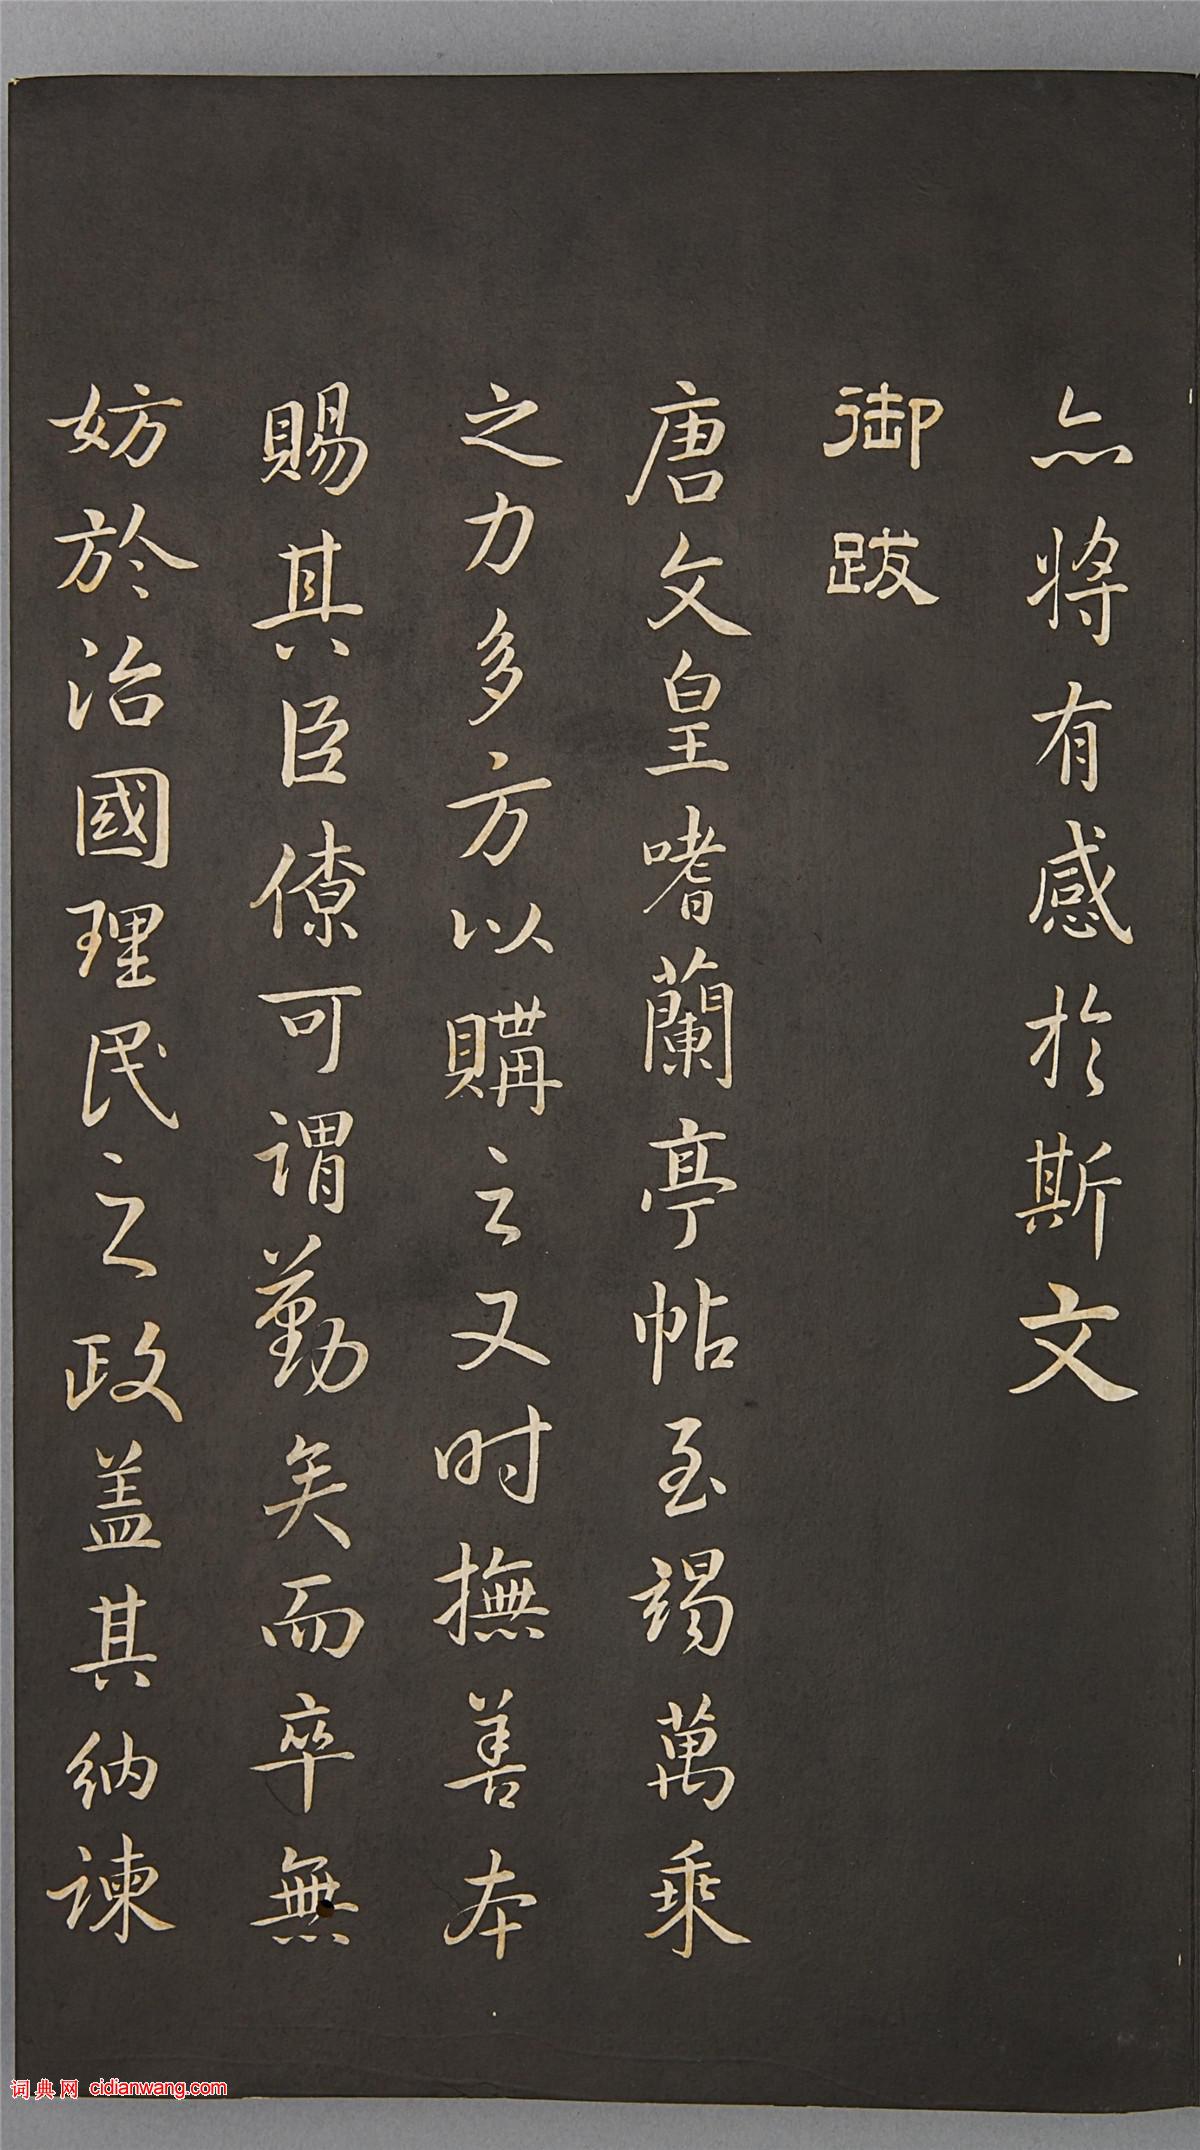 亦將有感於斯文
御跋
唐文皇嗜蘭亭帖至竭萬乘
之力多方以購之又时撫善本
賜其臣僚可謂勤矣而卒無
妨於治國理民之政盖其納諫
词典网 cidianwang.com